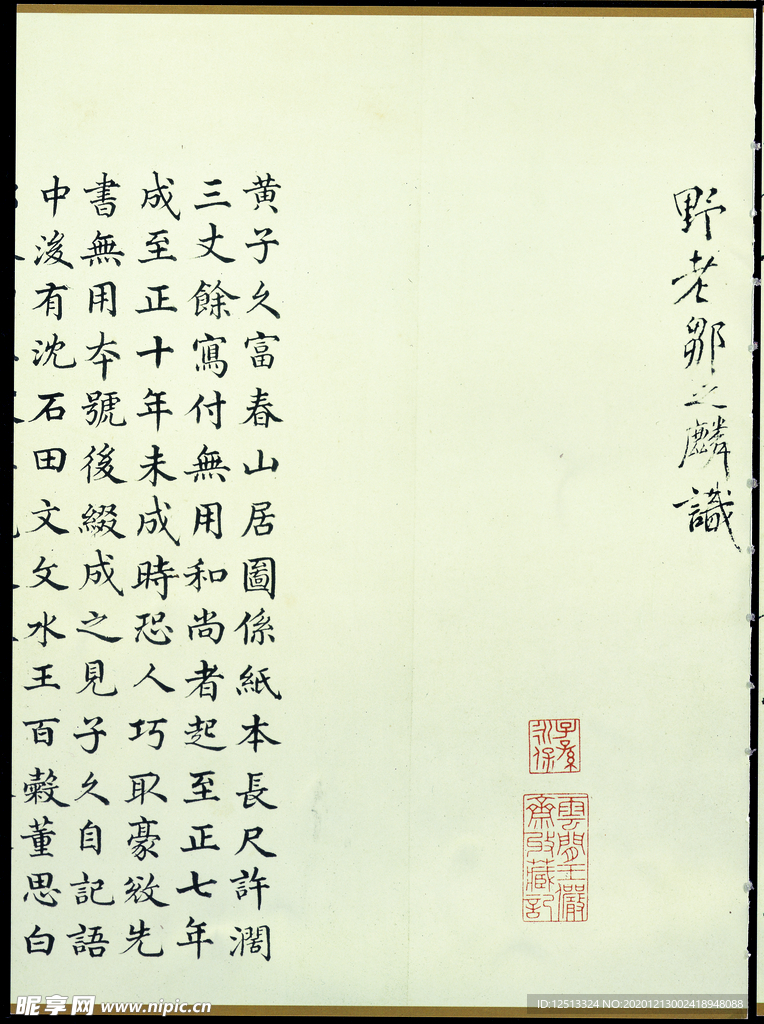 野老鄒之麟識
子孫
永保
雲間王儼
齋收藏記
黄子久富春山居圖係紙本長尺許濶
三丈餘寫付無用和尚者起至正七年
成至正十年未成時恐人巧取豪敚先
書無用夲號後綴成之見子久自記語
中後有沈石田文文水王百穀董思白
昵享网 www.nipic.cn
ID:12513324 NO:20201213002418948088